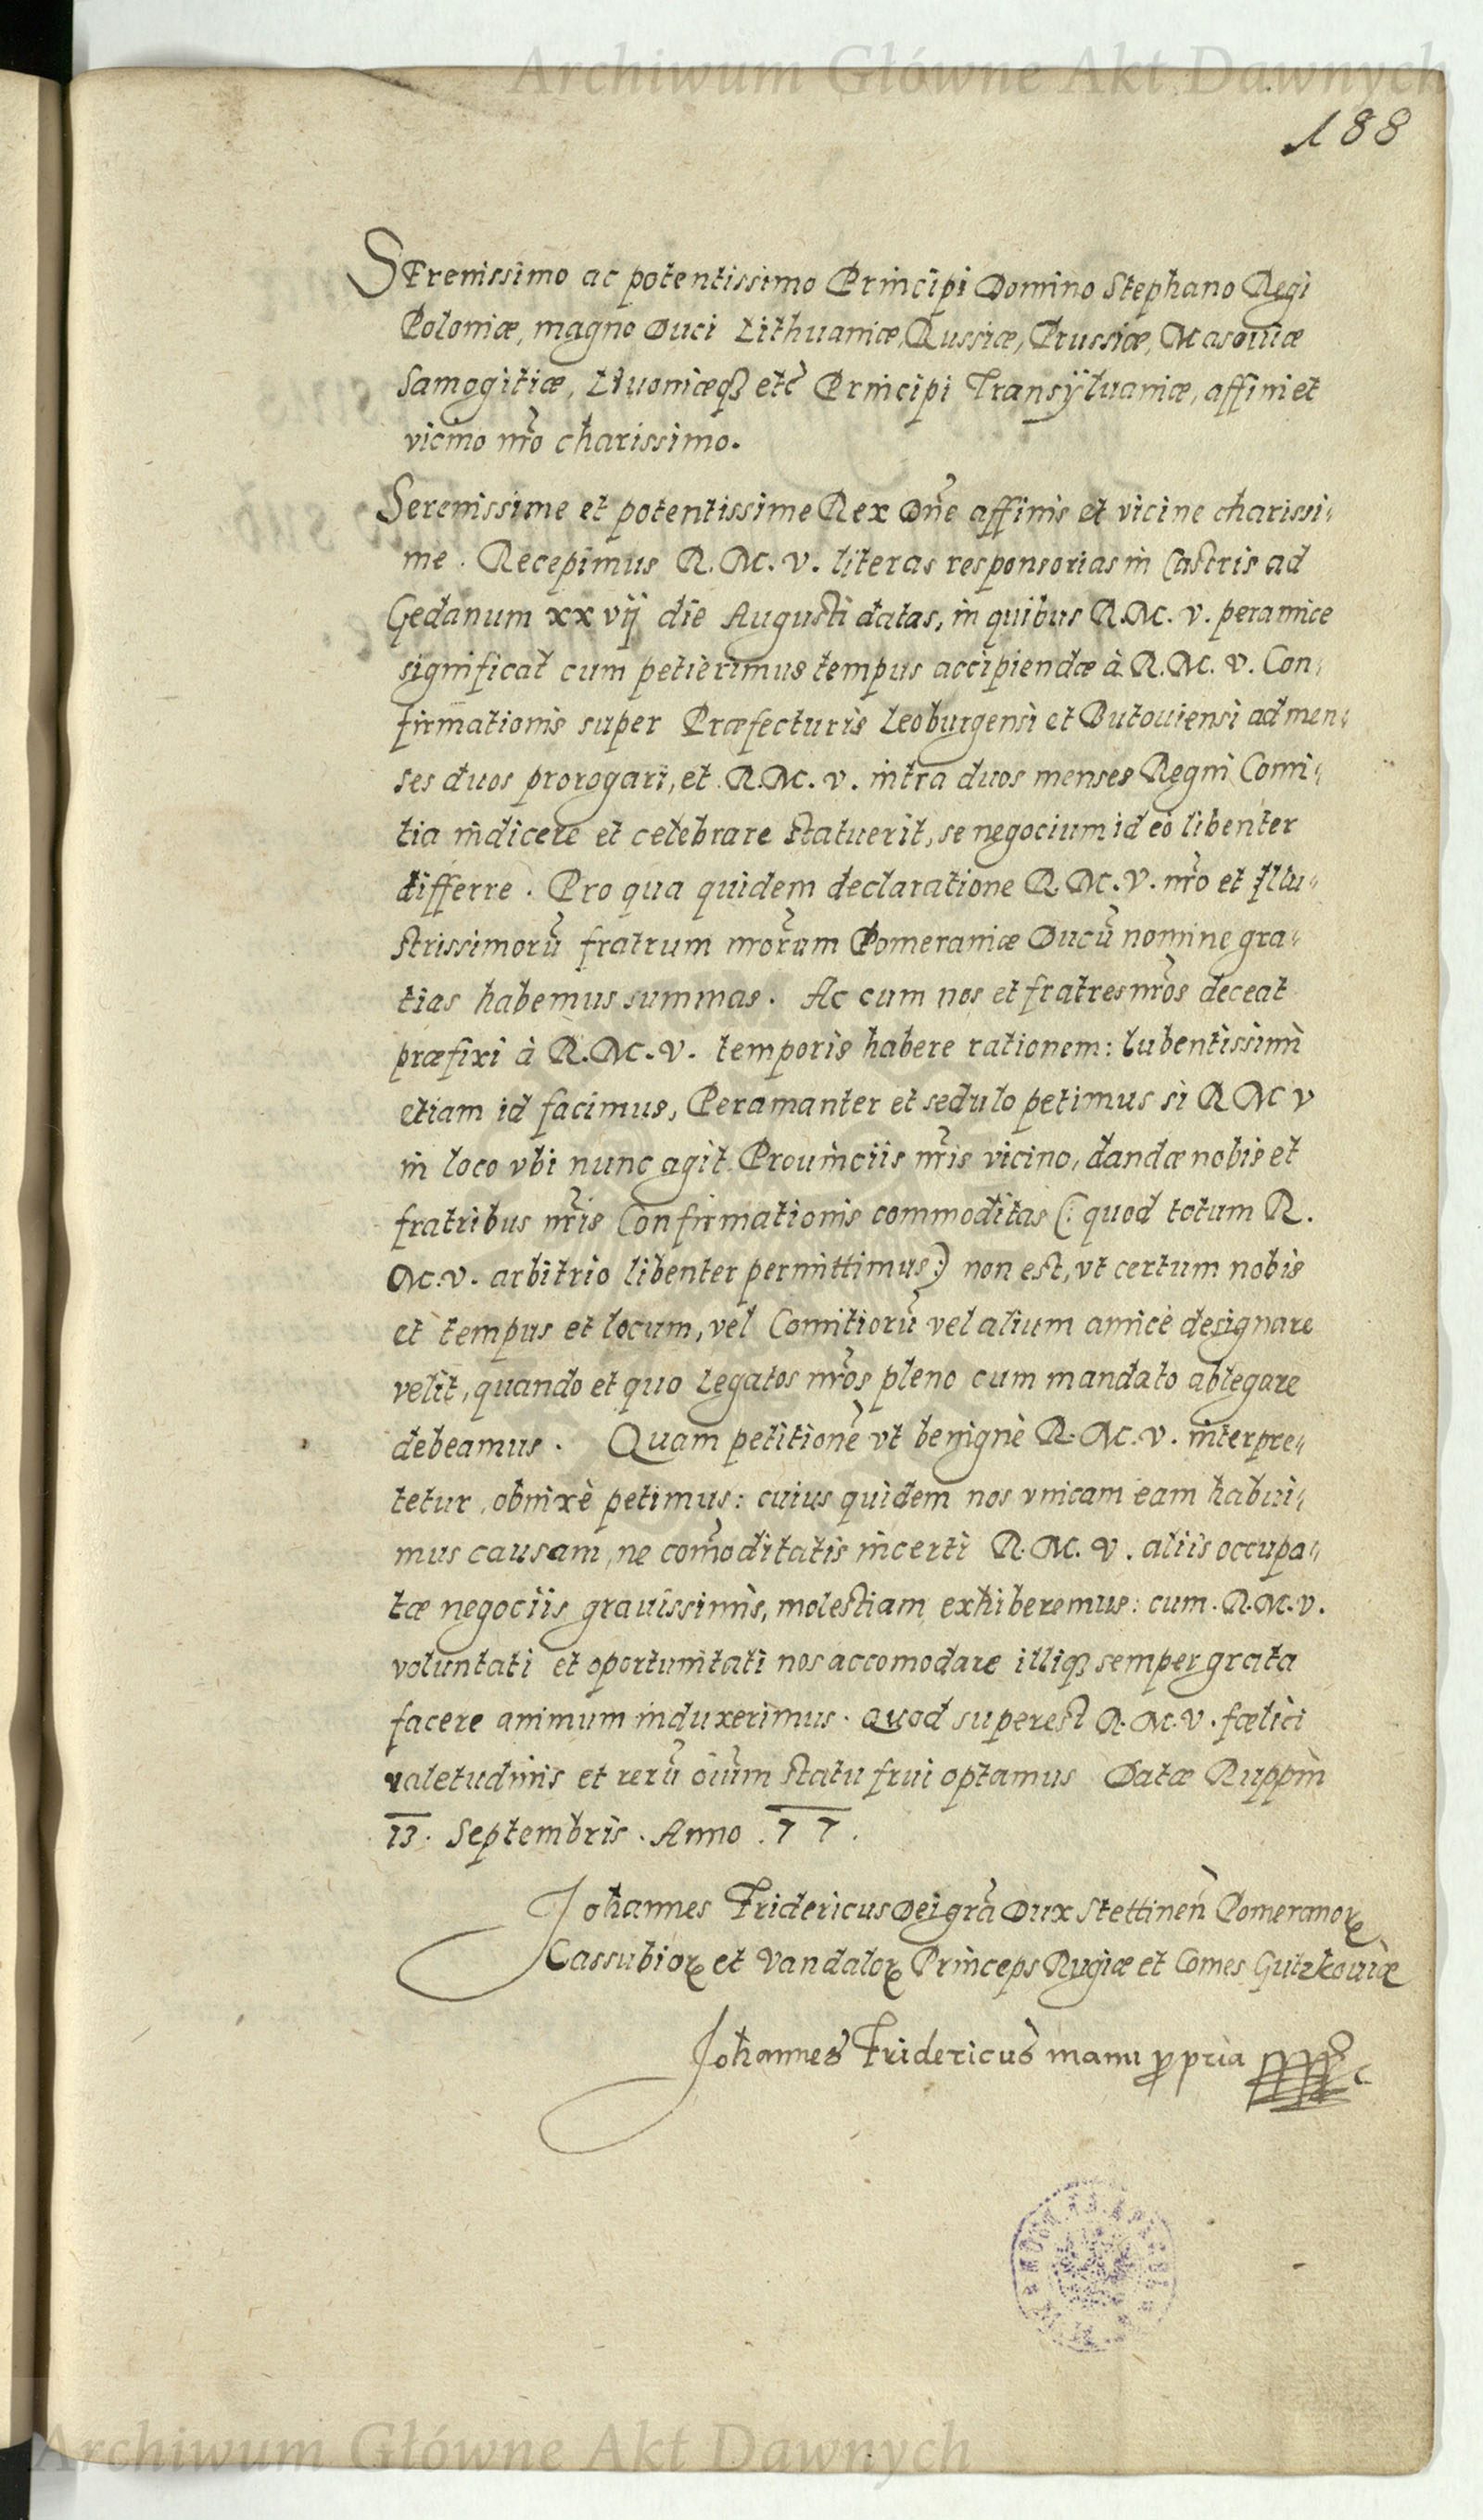 Archiwum Główne Akt Dawnych
188
SErenissimo ac potentissimo Principi Domino Stephano Regi
Poloniæ, magno Duci Lithuaniæ, Russiæ, Prussiæ, Masouiæ
Samogitiæ, Liuoniæq3 etc̃ Principi Transÿluaniæ, affini et
vicino nr̃o charissimo.
Serenissime et potentissime Rex Dñe affinis et vicine charissi-
me. Recepimus R. M. V. literas responsorias in Castris ad
Gedanum xxvij die Augusti datas, in quibus R. M. V. peramice
significat cum petierimus tempus accipiendæ à R. M. V. Con-
firmationis super Præfecturis Leoburgensi et Butouiensi ad men-
ses duos prorogari, et R. M. V. intra duos menses Regni Comi-
tia indicere et celebrare statuerit, se negocium id eò libenter
differre. Pro qua quidem declaratione R. M. V. nr̃o et Illu-
strissimorũ fratrum nr̃orum Pomeraniæ Ducũ nomine gra-
tias habemus summas. Ac cum nos et fratres nr̃os deceat
præfixi à R. M. V. temporis habere rationem: lubentissimi
etiam id facimus, Peramanter et sedulo petimus si R M V
in loco vbi nunc agit Prouinciis nr̃is vicino, dandæ nobis et
fratribus nr̃is Confirmationis commoditas (: quod totum R.
M. V. arbitrio libenter permittimus:) non est, vt certum nobis
et tempus et locum, vel Comitiorũ vel alium amicè designare
velit, quando et quo Legatos nr̃os pleno cum mandato ablegare
debeamus. Quam petitionẽ vt benignè R. M. V. interpre-
tetur, obnixè petimus: cuius quidem nos vnicam eam habui-
mus causam, ne com̃oditatis incerti R. M. V. aliis occupa-
tæ negociis grauissimis, molestiam exhiberemus: cum R. M. V.
voluntati et oportunitati nos accomodare illiq3 semper grata
facere animum induxerimus. Quod superest R. M. V. fœlici
valetudinis et rerũ oĩum statu frui optamus Datæ Ruppin
13. Septembris. Anno. 77.
Johannes Fridericus Dei grã Dux Stettineñ Pomeranorꝝ
Cassubiorꝝ et Vandalorꝝ Princeps Rugiæ et Comes Gutzkouiæ
Johannes Fridericus manu ꝓpria
Archiwum Główne Akt Dawnych